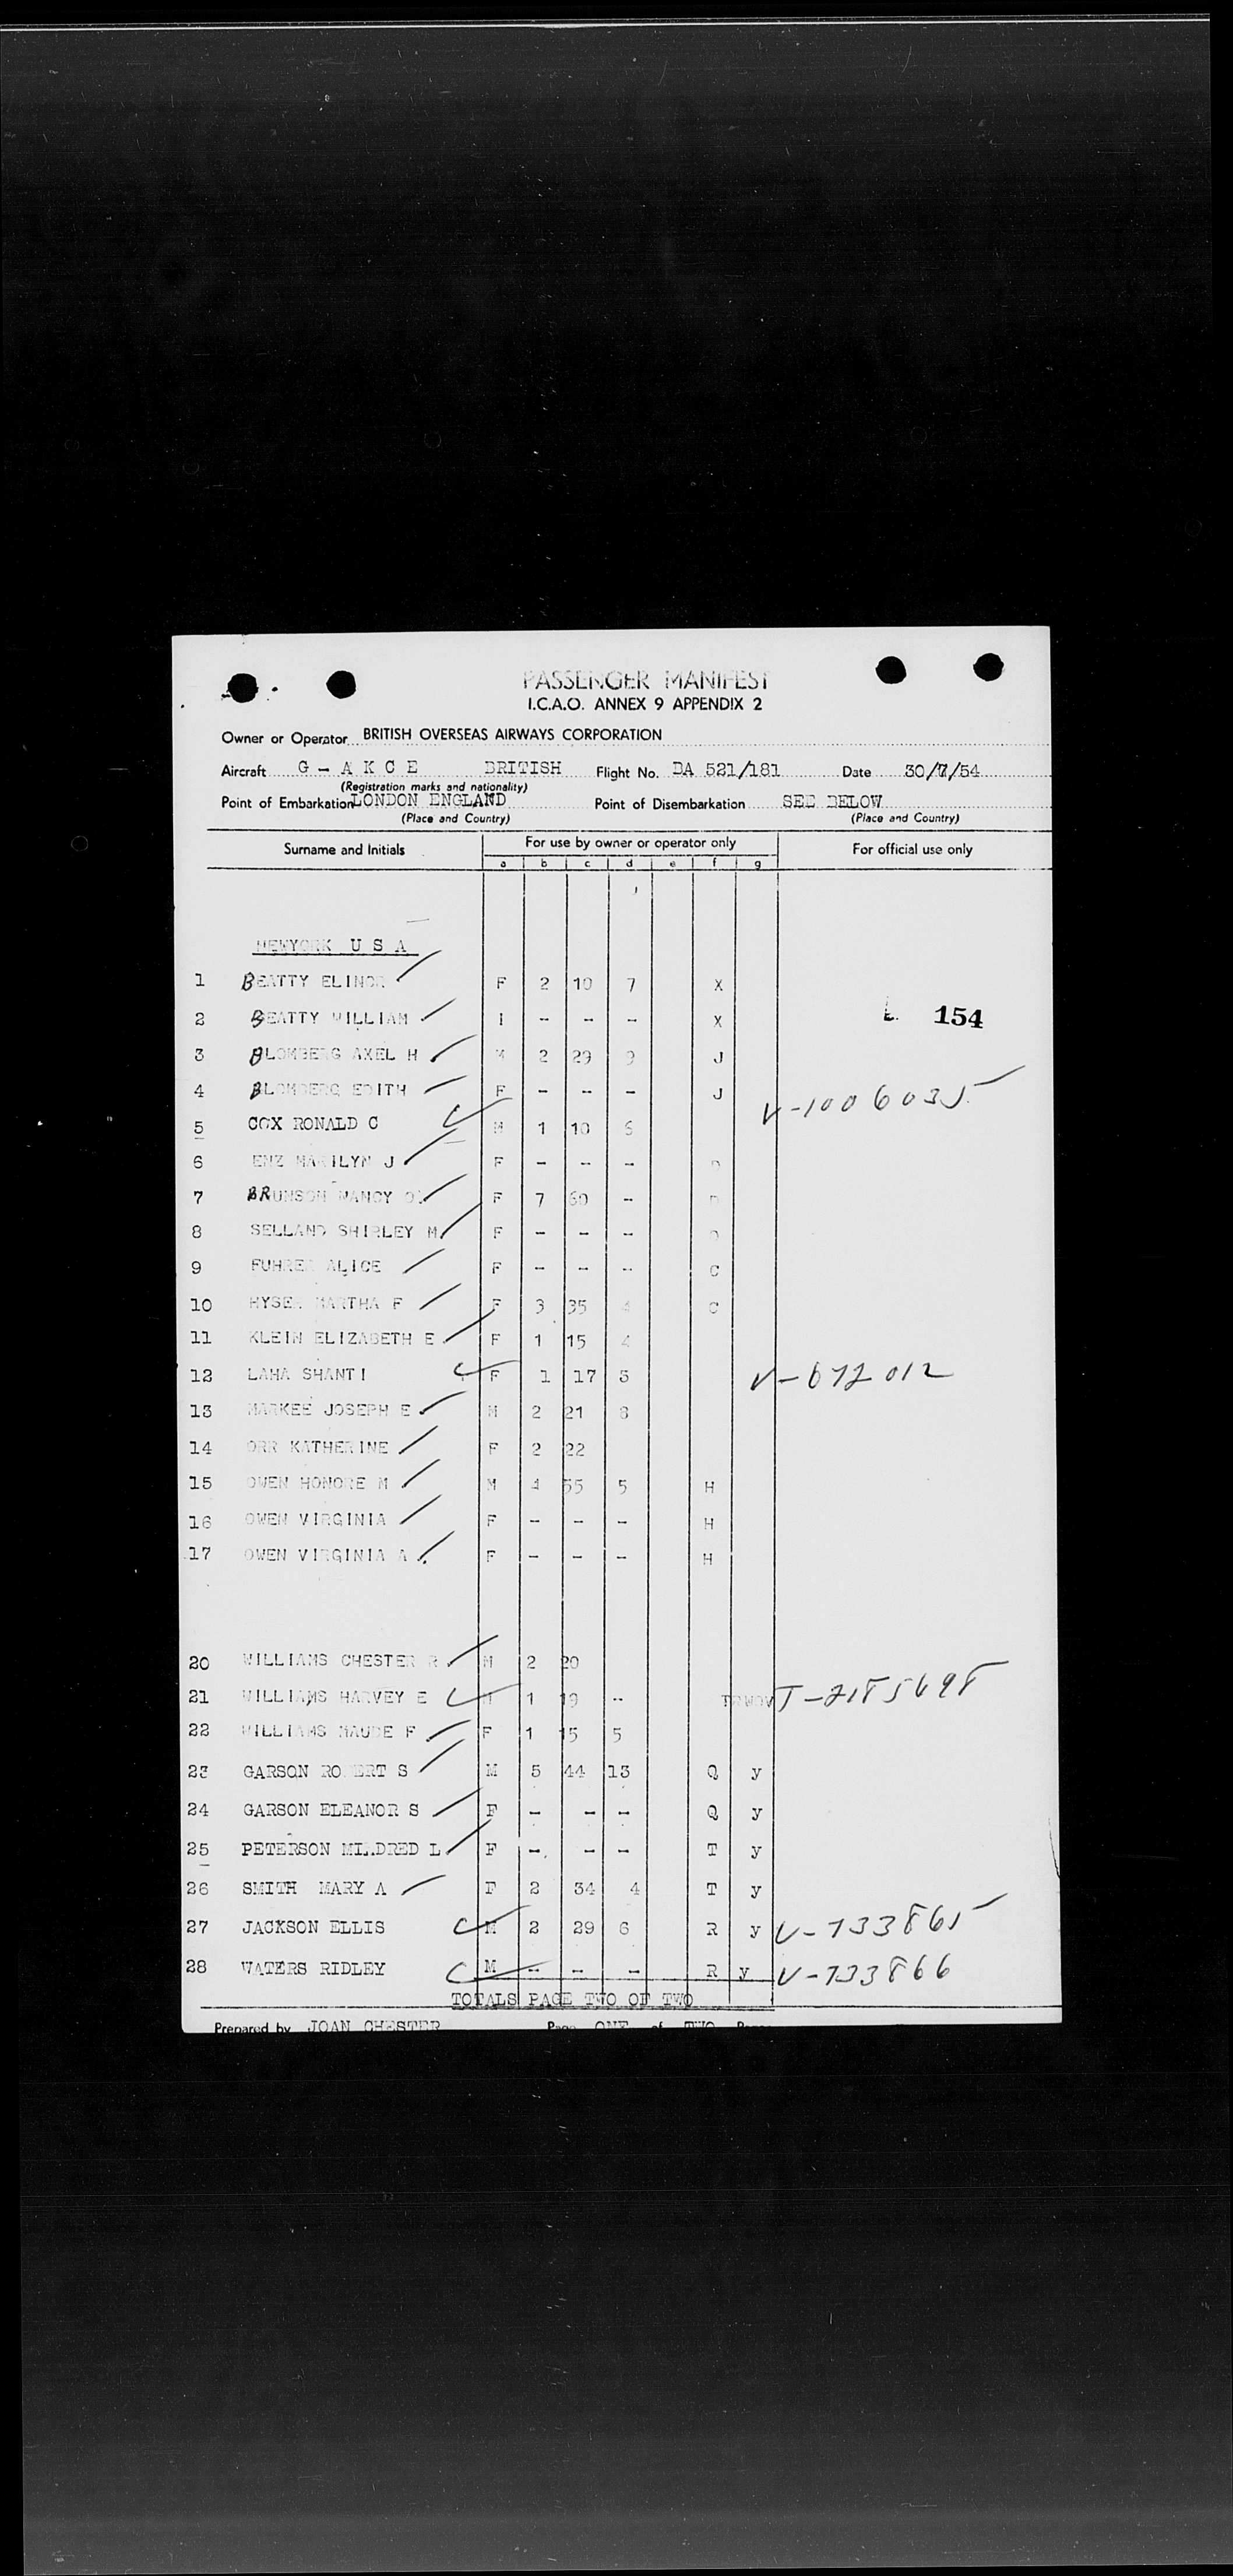 PASSENGER MANIFEST
I.C.A.O. ANNEX 9 APPENDIX 2
Owner or Operator BRITISH OVERSEAS AIRWAYS CORPORATION
Aircraft G - A K C E BRITISH Flight No. BA 521/181 Date 30/7/54
(Registration marks and nationality)
Point of Embarkation LONDON ENGLAND Point of Disembarkation SEE BELOW
(Place and Country) (Place and Country)
Surname and Initials For use by owner or operator only For official use only
a b c d e f g
NEWYORK U S A
1 BEATTY ELINOR F 2 10 7 X
2 BEATTY WILLIAM I - - - X
L. 154
3 BLOMBERG AXEL H M 2 29 9 J
4 BLOMBERG EDITH F - - - J
5 COX RONALD C M 1 10 6 V-1006035
6 ENZ MARILYN J F - - - D
7 BRUNSON NANCY F 7 60 - D
8 SELLAND SHIRLEY M F - - - D
9 FUHRER ALICE F - - - C
10 HYSER MARTHA F F 3 35 4 C
11 KLEIN ELIZABETH E F 1 15 4
12 LAHA SHANTI F 1 17 5 V-672012
13 MARKEE JOSEPH E M 2 21 8
14 ORR KATHERINE F 2 22
15 OWEN HONORE M M 4 55 5 H
16 OWEN VIRGINIA F - - - H
17 OWEN VIRGINIA A F - - - H
20 WILLIAMS CHESTER R M 2 20
21 WILLIAMS HARVEY E M 1 19 - TRWOV T-2185698
22 WILLIAMS MAUDE F F 1 15 5
23 GARSON ROBERT S M 5 44 13 Q y
24 GARSON ELEANOR S F - - - Q y
25 PETERSON MILDRED L F - - - T y
26 SMITH MARY A F 2 34 4 T y
27 JACKSON ELLIS M 2 29 6 R y V-733865
28 WATERS RIDLEY M - - - R y V-733866
TOTALS PAGE TWO OF TWO
Prepared by JOAN CHESTER Page ONE of TWO Pages